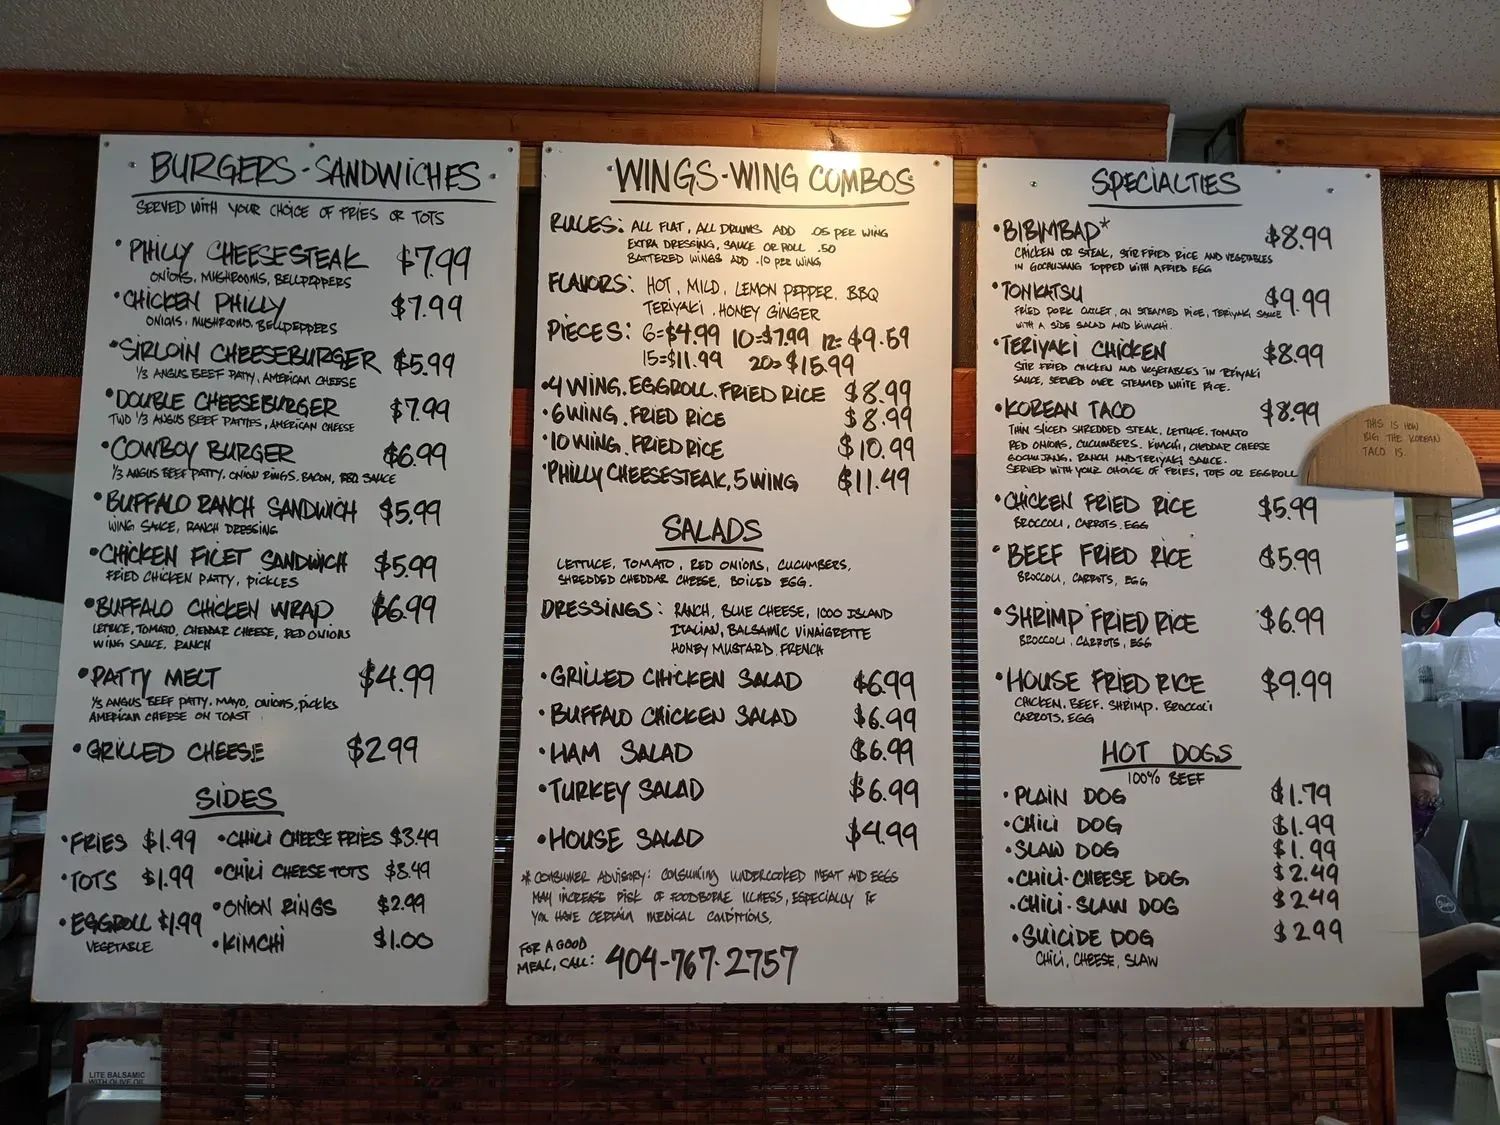 BURGERS-SANDWICHES
SERVED WITH YOUR CHOICE OF FRIES OR TOTS
• PHILLY CHEESESTEAK $7.99
ONIONS, MUSHROOMS, BELLPEPPERS
• CHICKEN PHILLY $7.99
ONIONS, MUSHROOMS, BELLPEPPERS
• SIRLOIN CHEESEBURGER $5.99
1/3 ANGUS BEEF PATTY, AMERICAN CHEESE
• DOUBLE CHEESEBURGER $7.99
TWO 1/3 ANGUS BEEF PATTIES, AMERICAN CHEESE
• COWBOY BURGER $6.99
1/3 ANGUS BEEF PATTY, ONION RINGS, BACON, BBQ SAUCE
• BUFFALO RANCH SANDWICH $5.99
WING SAUCE, RANCH DRESSING
• CHICKEN FILET SANDWICH $5.99
FRIED CHICKEN PATTY, PICKLES
• BUFFALO CHICKEN WRAP $6.99
LETTUCE, TOMATO, CHEDDAR CHEESE, RED ONIONS
WING SAUCE, RANCH
• PATTY MELT $4.99
1/3 ANGUS BEEF PATTY, MAYO, ONIONS, PICKLES
AMERICAN CHEESE ON TOAST
• GRILLED CHEESE $2.99
SIDES
• FRIES $1.99 • CHILI CHEESE FRIES $3.49
• TOTS $1.99 • CHILI CHEESE TOTS $3.49
• EGGROLL $1.99 • ONION RINGS $2.99
VEGETABLE • KIMCHI $1.00
WINGS-WING COMBOS
RULES: ALL FLAT, ALL DRUMS ADD .05 PER WING
EXTRA DRESSING, SAUCE OR ROLL .50
BATTERED WINGS ADD .10 PER WING
FLAVORS: HOT, MILD, LEMON PEPPER, BBQ
TERIYAKI, HONEY GINGER
PIECES: 6=$4.99 10=$7.99 12=$9.59
15=$11.99 20=$15.99
• 4 WING. EGGROLL. FRIED RICE $8.99
• 6 WING. FRIED RICE $8.99
• 10 WING. FRIED RICE $10.99
• PHILLY CHEESESTEAK, 5 WING $11.49
SALADS
LETTUCE, TOMATO, RED ONIONS, CUCUMBERS,
SHREDDED CHEDDAR CHEESE, BOILED EGG.
DRESSINGS: RANCH, BLUE CHEESE, 1000 ISLAND
ITALIAN, BALSAMIC VINAIGRETTE
HONEY MUSTARD, FRENCH
• GRILLED CHICKEN SALAD $6.99
• BUFFALO CHICKEN SALAD $6.99
• HAM SALAD $6.99
• TURKEY SALAD $6.99
• HOUSE SALAD $4.99
* CONSUMER ADVISORY: CONSUMING UNDERCOOKED MEAT AND EGGS
MAY INCREASE RISK OF FOODBORNE ILLNESS, ESPECIALLY IF
YOU HAVE CERTAIN MEDICAL CONDITIONS.
FOR A GOOD
MEAL, CALL: 404-767-2757
SPECIALTIES
• BIBIMBAP* $8.99
CHICKEN OR STEAK, STIR FRIED RICE AND VEGETABLES
IN GOCHUJANG TOPPED WITH A FRIED EGG
• TONKATSU $9.99
FRIED PORK CUTLET, ON STEAMED RICE, TERIYAKI SAUCE
WITH A SIDE SALAD AND KIMCHI.
• TERIYAKI CHICKEN $8.99
STIR FRIED CHICKEN AND VEGETABLES IN TERIYAKI
SAUCE, SERVED OVER STEAMED WHITE RICE.
• KOREAN TACO $8.99
THIN SLICED SHREDDED STEAK, LETTUCE, TOMATO
RED ONIONS, CUCUMBERS, KIMCHI, CHEDDAR CHEESE
GOCHUJANG, RANCH AND TERIYAKI SAUCE.
SERVED WITH YOUR CHOICE OF FRIES, TOTS OR EGGROLL
THIS IS HOW
BIG THE KOREAN
TACO IS
• CHICKEN FRIED RICE $5.99
BROCCOLI, CARROTS, EGG
• BEEF FRIED RICE $5.99
BROCCOLI, CARROTS, EGG
• SHRIMP FRIED RICE $6.99
BROCCOLI, CARROTS, EGG
• HOUSE FRIED RICE $9.99
CHICKEN, BEEF, SHRIMP, BROCCOLI
CARROTS, EGG
HOT DOGS
100% BEEF
• PLAIN DOG $1.79
• CHILI DOG $1.99
• SLAW DOG $1.99
• CHILI-CHEESE DOG $2.49
• CHILI-SLAW DOG $2.49
• SUICIDE DOG $2.99
CHILI, CHEESE, SLAW
LITE BALSAMIC
WITH OLIVE OIL